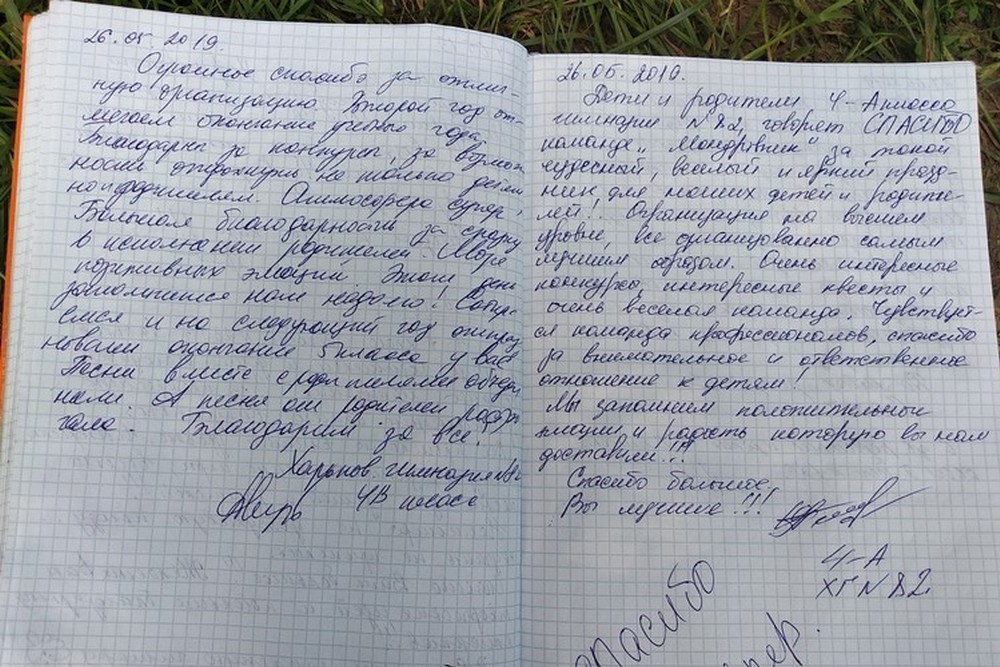 26.05.2019.
Огромное спасибо за отлич-
ную организацию. Второй год от-
мечаем окончание учебного года.
Благодарны за конкурсы, за возмож
ность отдохнуть не только детям
но и родителям. Атмосфера супер,
Большая благодарность за сказку
в исполнении родителей. Море
позитивных эмоций. Этот день
запомнится нам надолго!
и на следующий год отпраз
новаем окончание 5 класса у вас
Песни вместе с родителями объеди
нили. А песня от родителей
Благодарим за все!
Харьков. гимназия №82
4В класс
26.05.2019.
Дети и родители 4-А класса
гимназии №82, говорят СПАСИБО
команде „ " за такой
чудесный, веселый и яркий празд-
ник для наших детей и родите-
лей!! Организация на высшем
уровне, все организованно самым
лучшим образом. Очень интересные
конкурсы, интересные квесты и
очень веселая команда. Чувствует-
ся команда профессионалов, спасибо
за внимательное и ответственное
отношение к детям!
Мы запомним положительные
эмоции и радость которую вы нам
доставили!!!
Спасибо большое.
Вы лучшие!!!
4-А
ХГ №82
спасибо